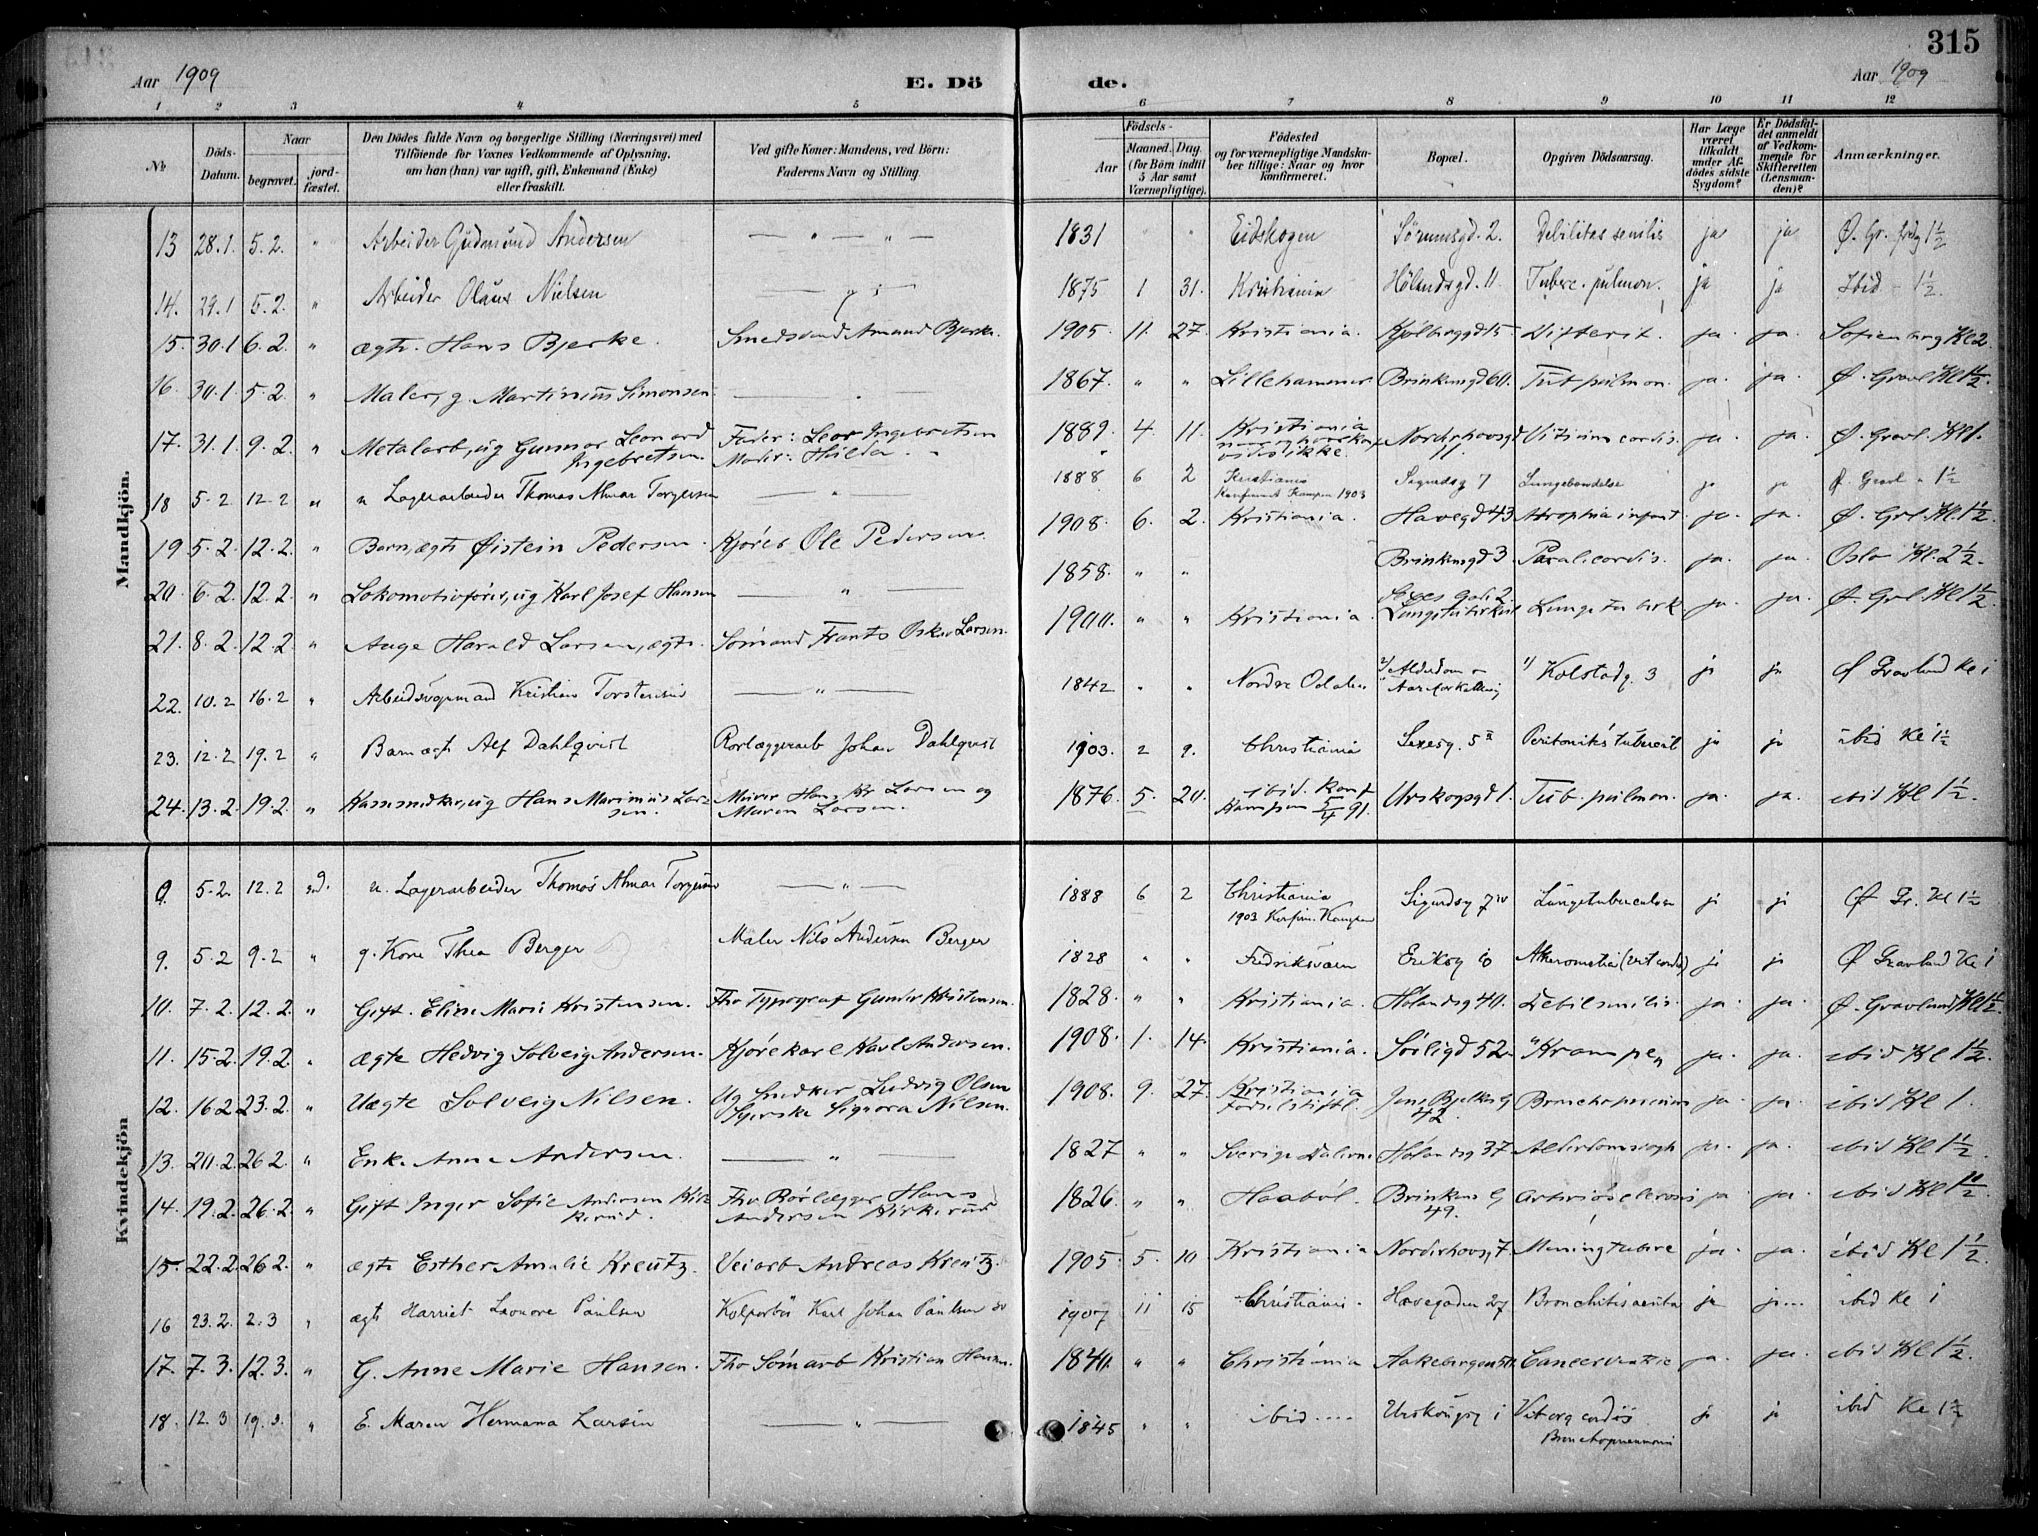 315
Aar 1909 E. Dö de. Aar 1909
1 2 3 4 5 6 7 8 9 10 11 12
No Döds-Datum. Naar begravet. jord-fæstet. Den Dödes fulde Navn og borgerlige Stilling (Næringsvei) med Tilföiende for Voxnes Vedkommende af Oplysning, om han (hun) var ugift, gift, Enkemand (Enke) eller fraskilt. Ved gifte Koner: Mandens, ved Börn: Faderens Navn og Stilling. Födsels- Aar Maaned. Dag. (for Börn indtil 5 Aar samt Værnepligtige). Födested og for værnepligtige Mandska-ber tillige: Naar og hvor konfirmeret. Bopæl. Opgiven Dödsaarsag. Har Læge været tilkaldt under Af-dödes sidste Sygdom? Er Dödsfal-det anmeldt af Vedkom-mende for Skifteretten (Lensman-den)? Anmærkninger.
Mandkjön.
13 28.1. 5.2. " Arbeider Gudmund Andersen — " — " — 1831 " " Eidskogen Sörumsgd. 2. Debilitas senilis ja ja Ø. Gr. 1½
14. 29.1 5.2. " Arbeider Olaus Nielsen 1875 1 31. Kristiania Hölandsgd. 11. Tuberc. pulmon. ja ja Ibid - 1½.
15. 30.1 6.2. " ægte. Hans Bjerke. Smedsvend Amand Bjerke. 1905. 11. 27. Kristiania. Kjölberggd 15 Difterit. ja. ja. Sofienberg Kl 2.
16. 30.1 5.2. " Maler, g. Martinius Simonsen. 1867. " " Lillehammer. Brinkensgd 60. Tub. pulmon. ja. ja. Ø. Gravl Kl 1½.
17. 31.1 9.2. " Metalarb, ug Gunnar Leonard Ingebretsen. Fader: Leor Ingebretsen Moder: Hulda " 1889. 4. 11. Kristiania Norderhovsgd 11. Vitium cordis. ja. ja. Ø. Gravl. Kl 1.
18 5.2 12.2 " u Lagerarbeider Thomas Almar Torgersen — " — 1888 6 2 Kristiania Konfirmert Kampen 1903 Sigurdsg 7 ja ja Ø Gravl " 1½
19 5.2. 12.2. " Barn, ægte Øistein Pedersen. Kjöreb. Ole Pedersen 1908. 6. 2. Kristiania. Havegd 43. Atrophia infant. ja. ja. Ø. Grl. Kl. 1½.
20. 6.2. 12.2. " Lokomotivförer, ug Karl Josef Hansen — " — 1858. " " Brinkensgd 3. Paral. cordis. ja. ja. Oslo Kl. 2½.
21. 8.2. 12.2. " Aage Harald Larsen, ægte. Sömand Frants Oskar Larsen. 1900. " " Kristiania. Lunge tuberk. ja. ja. Ø. Grl Kl 1½.
22. 10.2 16.2 " Arbeidsvogmand Kristians Torstensen — " — 1842 " " Nordre Odalen 2/ Alderdom - Aareforkalkning 1/ Kolstadg. 3 ja ja Ø Gravlund Kl 1
23. 12.2 19.2 " Barn ægte Alf Dahlqvist Rörlæggerarb Johan Dahlqvist 1903. 2 9. Christiania Sexesg. 5 II Peritonitis tubercul ja ja ibid Kl 1½
24. 13.2. 19.2. " Kassesnedker, ug Hans Marinius Larsen. Murer Hans Kr Larsen og Maren Larsen. 1876. 5. 20. ibid. Konf Kampen 5/4 91. Urskogsgd 1. Tub. pulmon. ja. ja. ibid Kl 1½.
Kvindekjön
0. 5.2. 12.2 u. Lagerarbeider Thomas Almar Torgersen — " — 1888 6 2 Christiania 1903 Konfirm. Kampen Sigurdsg 7 IV Lungetuberculose ja ja Ø Gr. Kl 1½
9. 5.2 9.2 " g. Kone Thea Berger Maler Nils Andersen Berger 1828 " " Fredriksværn Eriksg 10 ja ja Ø Gravlund Kl 1
10. 7.2. 12.2. " Gift. Elise Marie Kristensen. Fhv Typograf Gunder Kristensen. 1828. " " Kristiania. Hölandsg 40. Debil senilis. ja. ja. Ø. Gravlund Kl 1½.
11. 15.2. 19.2. " ægte Hedvig Solveig Andersen. Kjörekarl Karl Andersen. 1908. 1. 14. Kristiania. Sörligd 52. "Krampe" ja. ja. ibid Kl 1½.
12. 16.2 23.2. " Uægte Solveig Nilsen. Ug Snedker Ludvig Olsen Syerske Signora Nilsen. 1908. 9. 27. Kristiania Födselstift. Jens Bjelkes G 42. ja. ja. ibid Kl 1.
13. 20.2. 26.2. " Enke Anne Andersen. — " — 1827 " " Sverige Dalerne Hölandsg 37 ja. ja. ibid Kl 1½.
14. 19.2. 26.2. " Gift Inger Sofie Andersen Kirkerud. Fhv Rörlægger Hans Andersen Kirkerud 1826. " " Haaböl. Brinkens G 49. ja. ja. ibid Kl 1½.
15. 22.2. 26.2. " ægte Esther Amalie Kreutz. Veiarb Andreas Kreutz. 1905. 5. 10 Kristiania Norderhovsg. 7. Mening tuberc ja. ja. ibid Kl 1½.
16 23.2. 2.3 " ægte Harriet Leonore Paulsen Kolportör Karl Johan Paulsen 1907 11 15 Christiania. Havegaden 27 Bronchitis acuta ja ja... ibid Kl 1
17. 7.3. 12.3. " G. Anne Marie Hansen. Fhv Sömarb Kristian Hansen. 1840. " " Christiania Cancer ventric ja. ja. ibid Kl 1½.
18. 12.3 19.3. " E. Maren Hermana Larsen — " — 1845 " " ibid .... Urskougsg 1 Vit. org. cordis Bronchopneumoni ja ja ibid Kl 1½